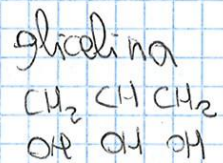 glicelina
CH₂ CH CH₂
OH OH OH